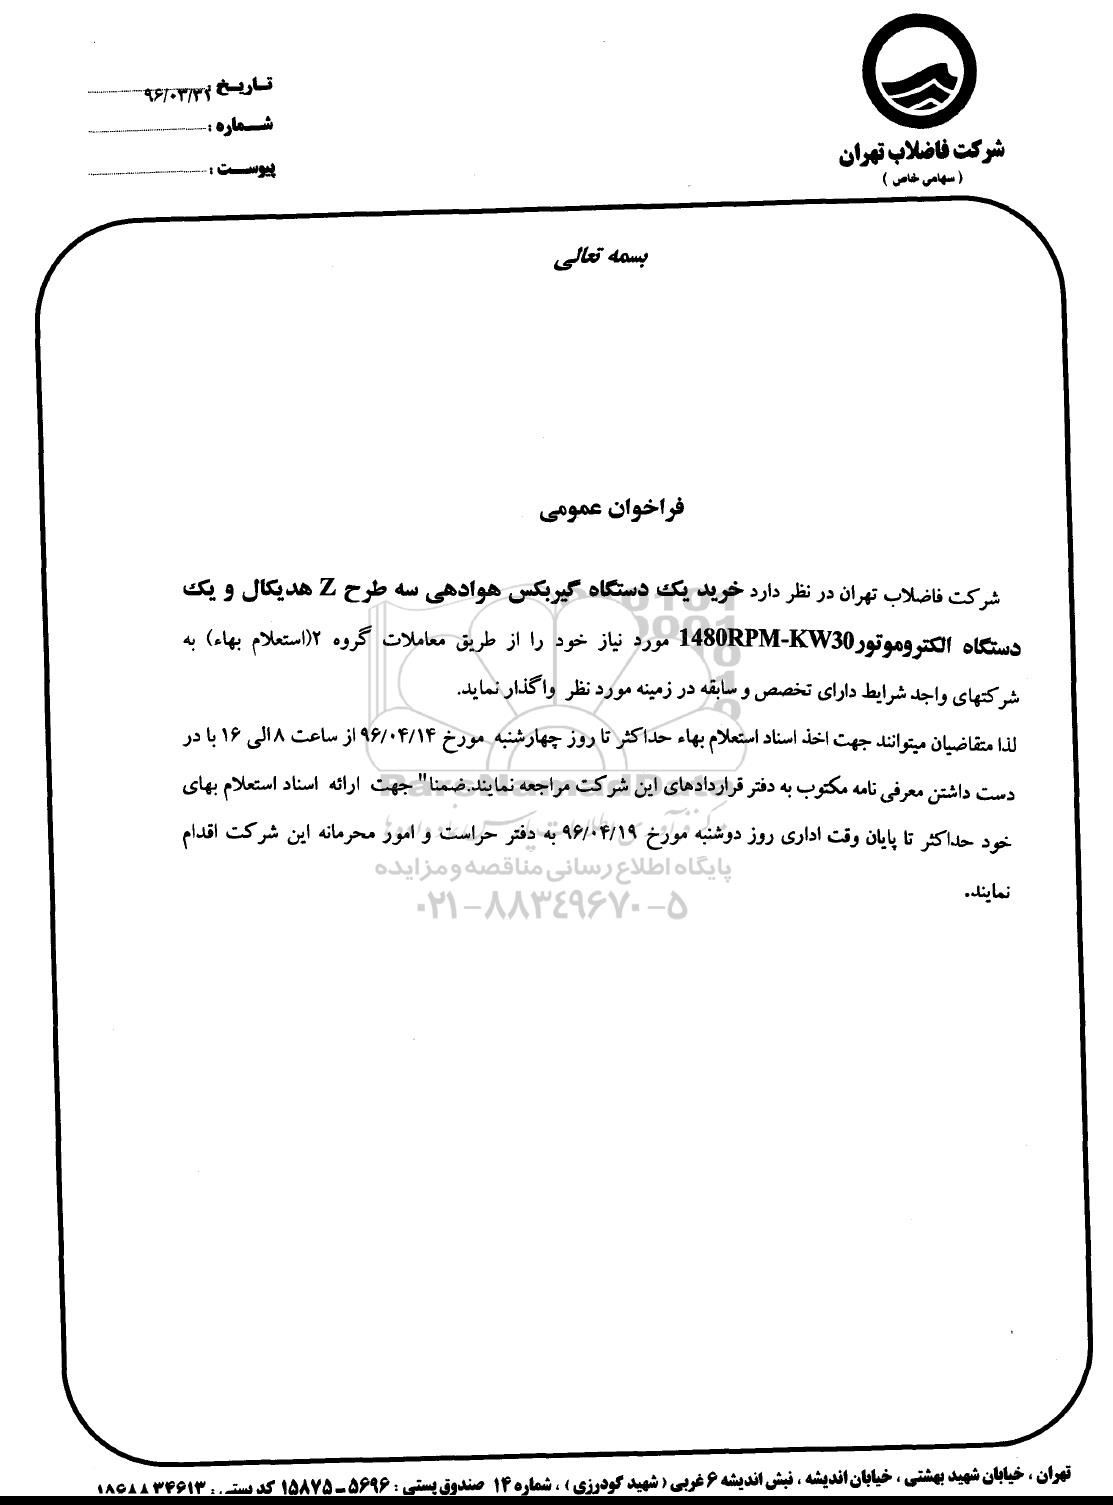 شرکت فاضلاب تهران
( سهامی خاص )
تـاریـخ :
شـــماره :
پیوســـت :
بسمه تعالی
فراخوان عمومی
شرکت فاضلاب تهران در نظر دارد خرید یک دستگاه گیربکس هوادهی سه طرح Z هدیکال و یک
دستگاه الکتروموتور1480RPM-KW30 مورد نیاز خود را از طریق معاملات گروه ۲(استعلام بهاء) به
شرکتهای واجد شرایط دارای تخصص و سابقه در زمینه مورد نظر واگذار نماید.
لذا متقاضیان میتوانند جهت اخذ اسناد استعلام بهاء حداکثر تا روز چهارشنبه مورخ ۹۶/۰۴/۱۴ از ساعت ۸ الی ۱۶ با در
دست داشتن معرفی نامه مکتوب به دفتر قراردادهای این شرکت مراجعه نمایند.ضمنا" جهت ارائه اسناد استعلام بهای
خود حداکثر تا پایان وقت اداری روز دوشنبه مورخ ۹۶/۰۴/۱۹ به دفتر حراست و امور محرمانه این شرکت اقدام
نمایند.
ParsNamadData
پایگاه اطلاع رسانی مناقصه و مزایده
۰۲۱-۸۸۳۴۹۶۷۰-۵
تهران ، خیابان شهید بهشتی ، خیابان اندیشه ، نبش اندیشه ۶ غربی ( شهید گودرزی ) ، شماره ۱۴ صندوق پستی : ۵۶۹۶ ـ ۱۵۸۷۵ کد پستی :